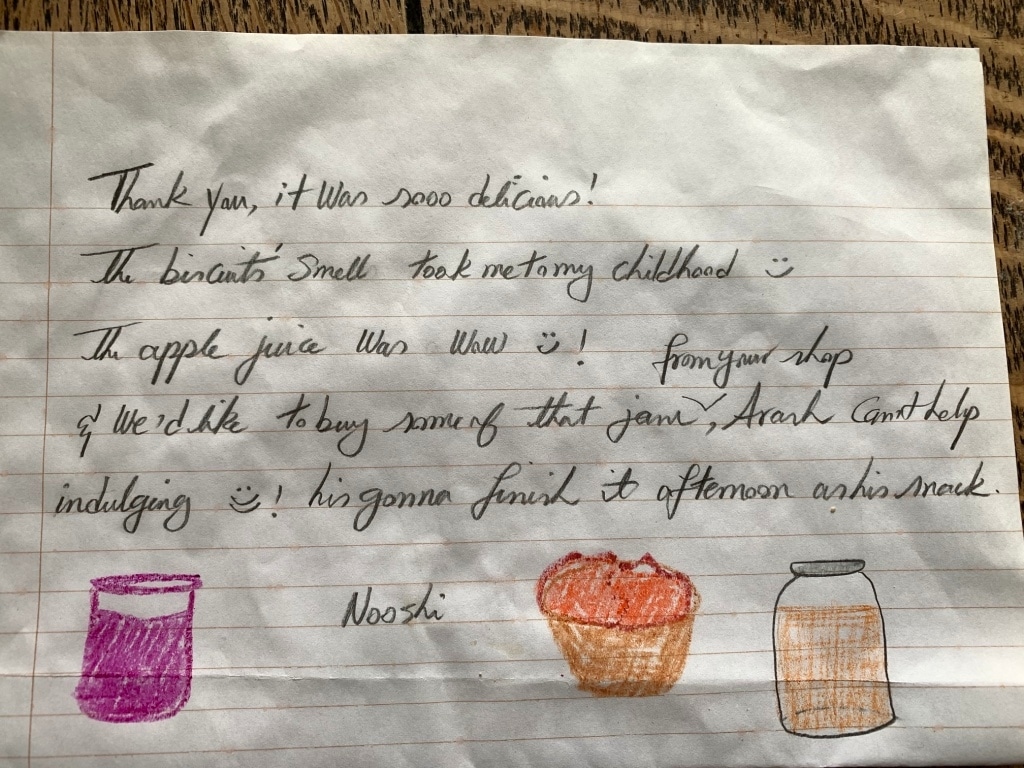 Thank you, it was sooo delicious!
The biscuits' smell took me to my childhood :)
The apple juice was waw :) !
from your shop
& We'd like to buy some of that jam ✓, Arash Cann't help
indulging :) ! his gonna finish it afternoon as his snack.
Nooshi